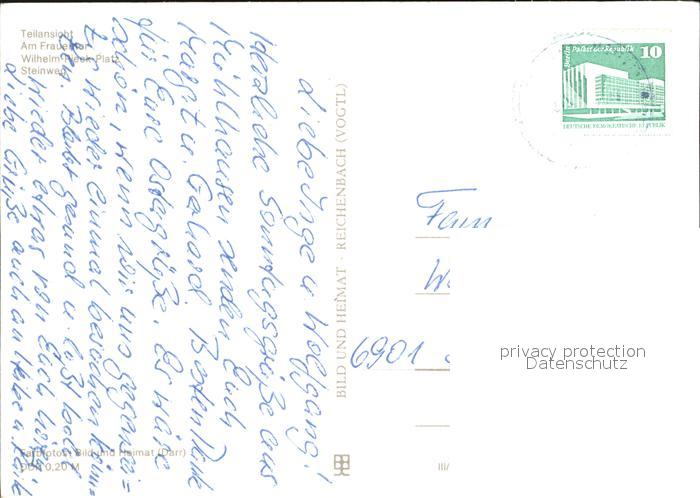 Teilansicht
Am Frauentor
Wilhelm-Pieck-Platz
Steinweg
Liebe Inge u. Wolfgang!
Herzliche Sonntagsgrüße aus
Mühlhausen senden Euch
Margt u. Gerhard. Besten Dank
für Eure Ostergrüße. Es wäre
schön, wenn wir uns gegensei=
tig wieder einmal besuchen könn=
ten. Bleibt gesund u. laßt bald
wieder etwas von Euch hören.
Liebe Grüße auch an
Farbfotos: Bild und Heimat (Darr)
DDR 0,20 M
BILD UND HEIMAT · REICHENBACH (VOGTL)
III/
Berlin Palast der Republik 10
DEUTSCHE DEMOKRATISCHE REPUBLIK
Fam
6901
privacy protection
Datenschutz